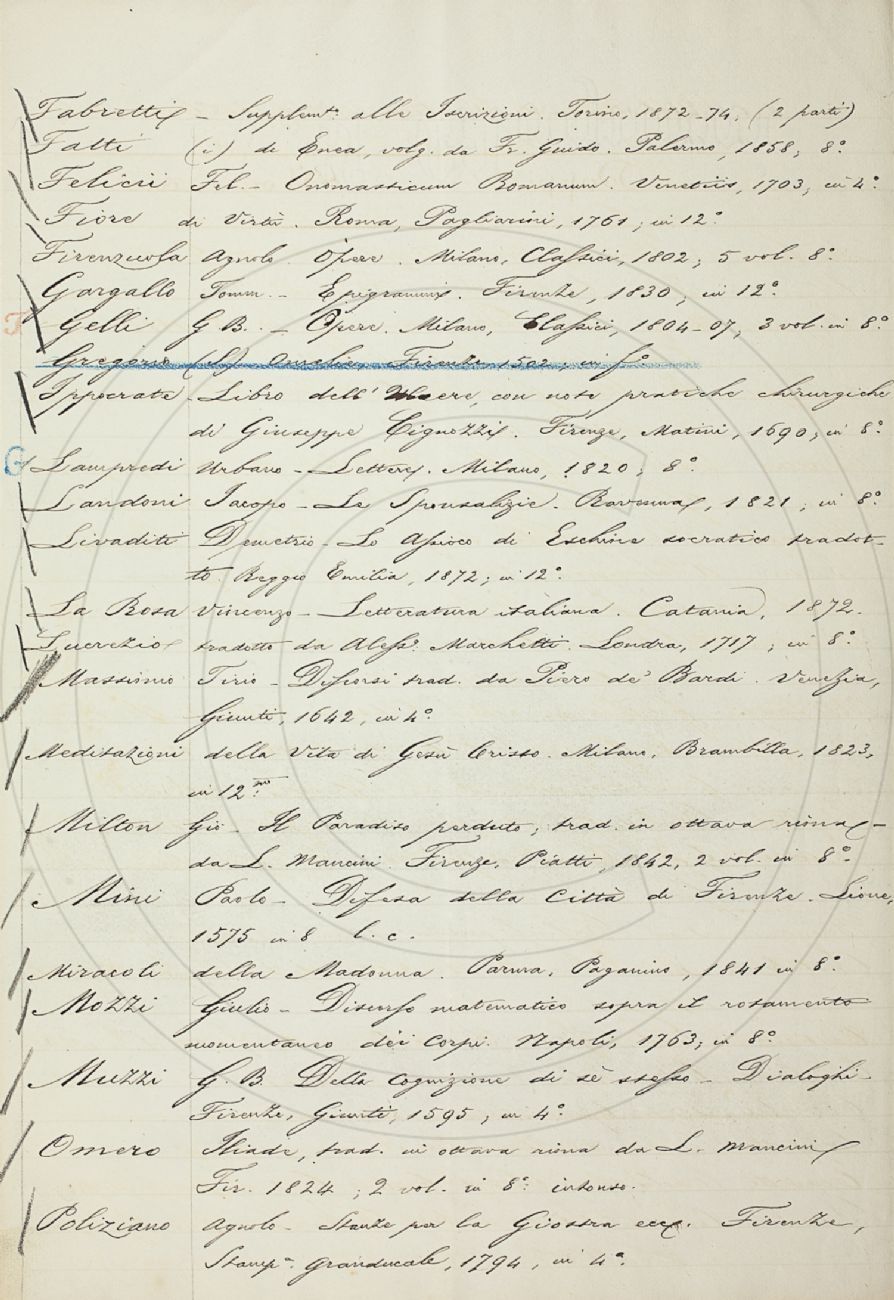 Fabretti – Supplem.to alle Iscrizioni. Torino, 1872-74. (2 parti)
Fatti (i) di Enea, volg. da Fr. Guido. Palermo, 1858; 8°.
Felicii Fel. – Onomasticum Romanum. Venetiis, 1703; in 4°.
Fiore di Virtù. Roma, Pagliarini, 1761; in 12°.
Firenzuola Agnolo. Opere. Milano, Classici, 1802; 5 vol. 8°.
Gargallo Tomm. – Epigrammi. Firenze, 1830; in 12°.
F Gelli G B. – Opere. Milano, Classici, 1804-07; 3 vol. in 8°.
Gregorio (S.) Omelie. Firenze 1502; in f°.
Ippocrate – Libro dell' Ulcere, con note pratiche chirurgiche
di Giuseppe Cignozzi. Firenze, Matini, 1690; in 8°.
G Lampredi Urbano – Lettere. Milano, 1820; 8°.
Landoni Jacopo – Le Sponsalizie. Ravenna, 1821; in 8°.
Livaditi Demetrio – Lo Assioco di Eschine socratico tradot-
to. Reggio Emilia, 1872; in 12°.
La Rosa Vincenzo – Letteratura italiana. Catania, 1872.
Lucrezio tradotto da Aless. Marchetti. Londra, 1717; in 8°.
Massimo Tirio – Discorsi trad. da Piero de' Bardi. Venezia,
Giunti, 1642, in 4°.
Meditazioni della Vita di Gesù Cristo. Milano, Brambilla, 1823,
in 12.mo
Milton Gio – Il Paradiso perduto; trad. in ottava rima –
da L. Mancini. Firenze, Piatti, 1842, 2 vol. in 8°.
Mini Paolo – Difesa della Città di Firenze. Lione,
1575 in 8 l. c.
Miracoli della Madonna. Parma, Paganino, 1841 in 8°.
Mozzi Giulio – Discorso matematico sopra il rotamento
momentaneo dei corpi. Napoli, 1763; in 8°.
Muzzi G. B. Della cognizione di sè stesso – Dialoghi –
Firenze, Giunti, 1595; in 4°.
Omero Iliade, trad. in ottava rima da L. Mancini
Fir. 1824; 2 vol. in 8°. intonso.
Poliziano Agnolo – Stanze per la Giostra ecc. Firenze,
Stamp.a Granducale, 1794, in 4°.